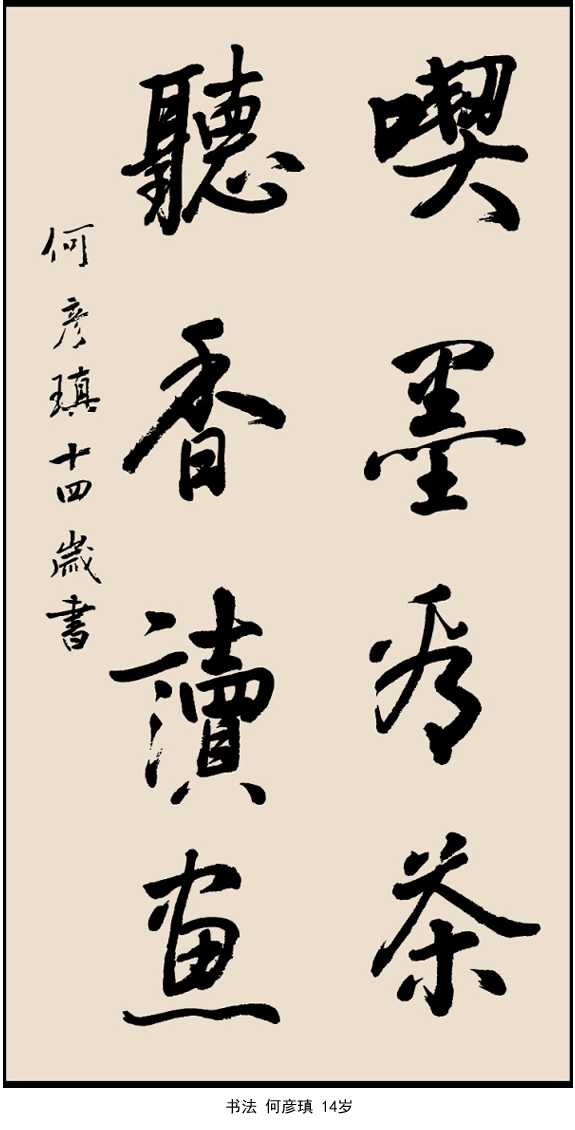 喫墨看茶
聽香讀畫
何彦瑱十四歲書
书法 何彦瑱 14岁